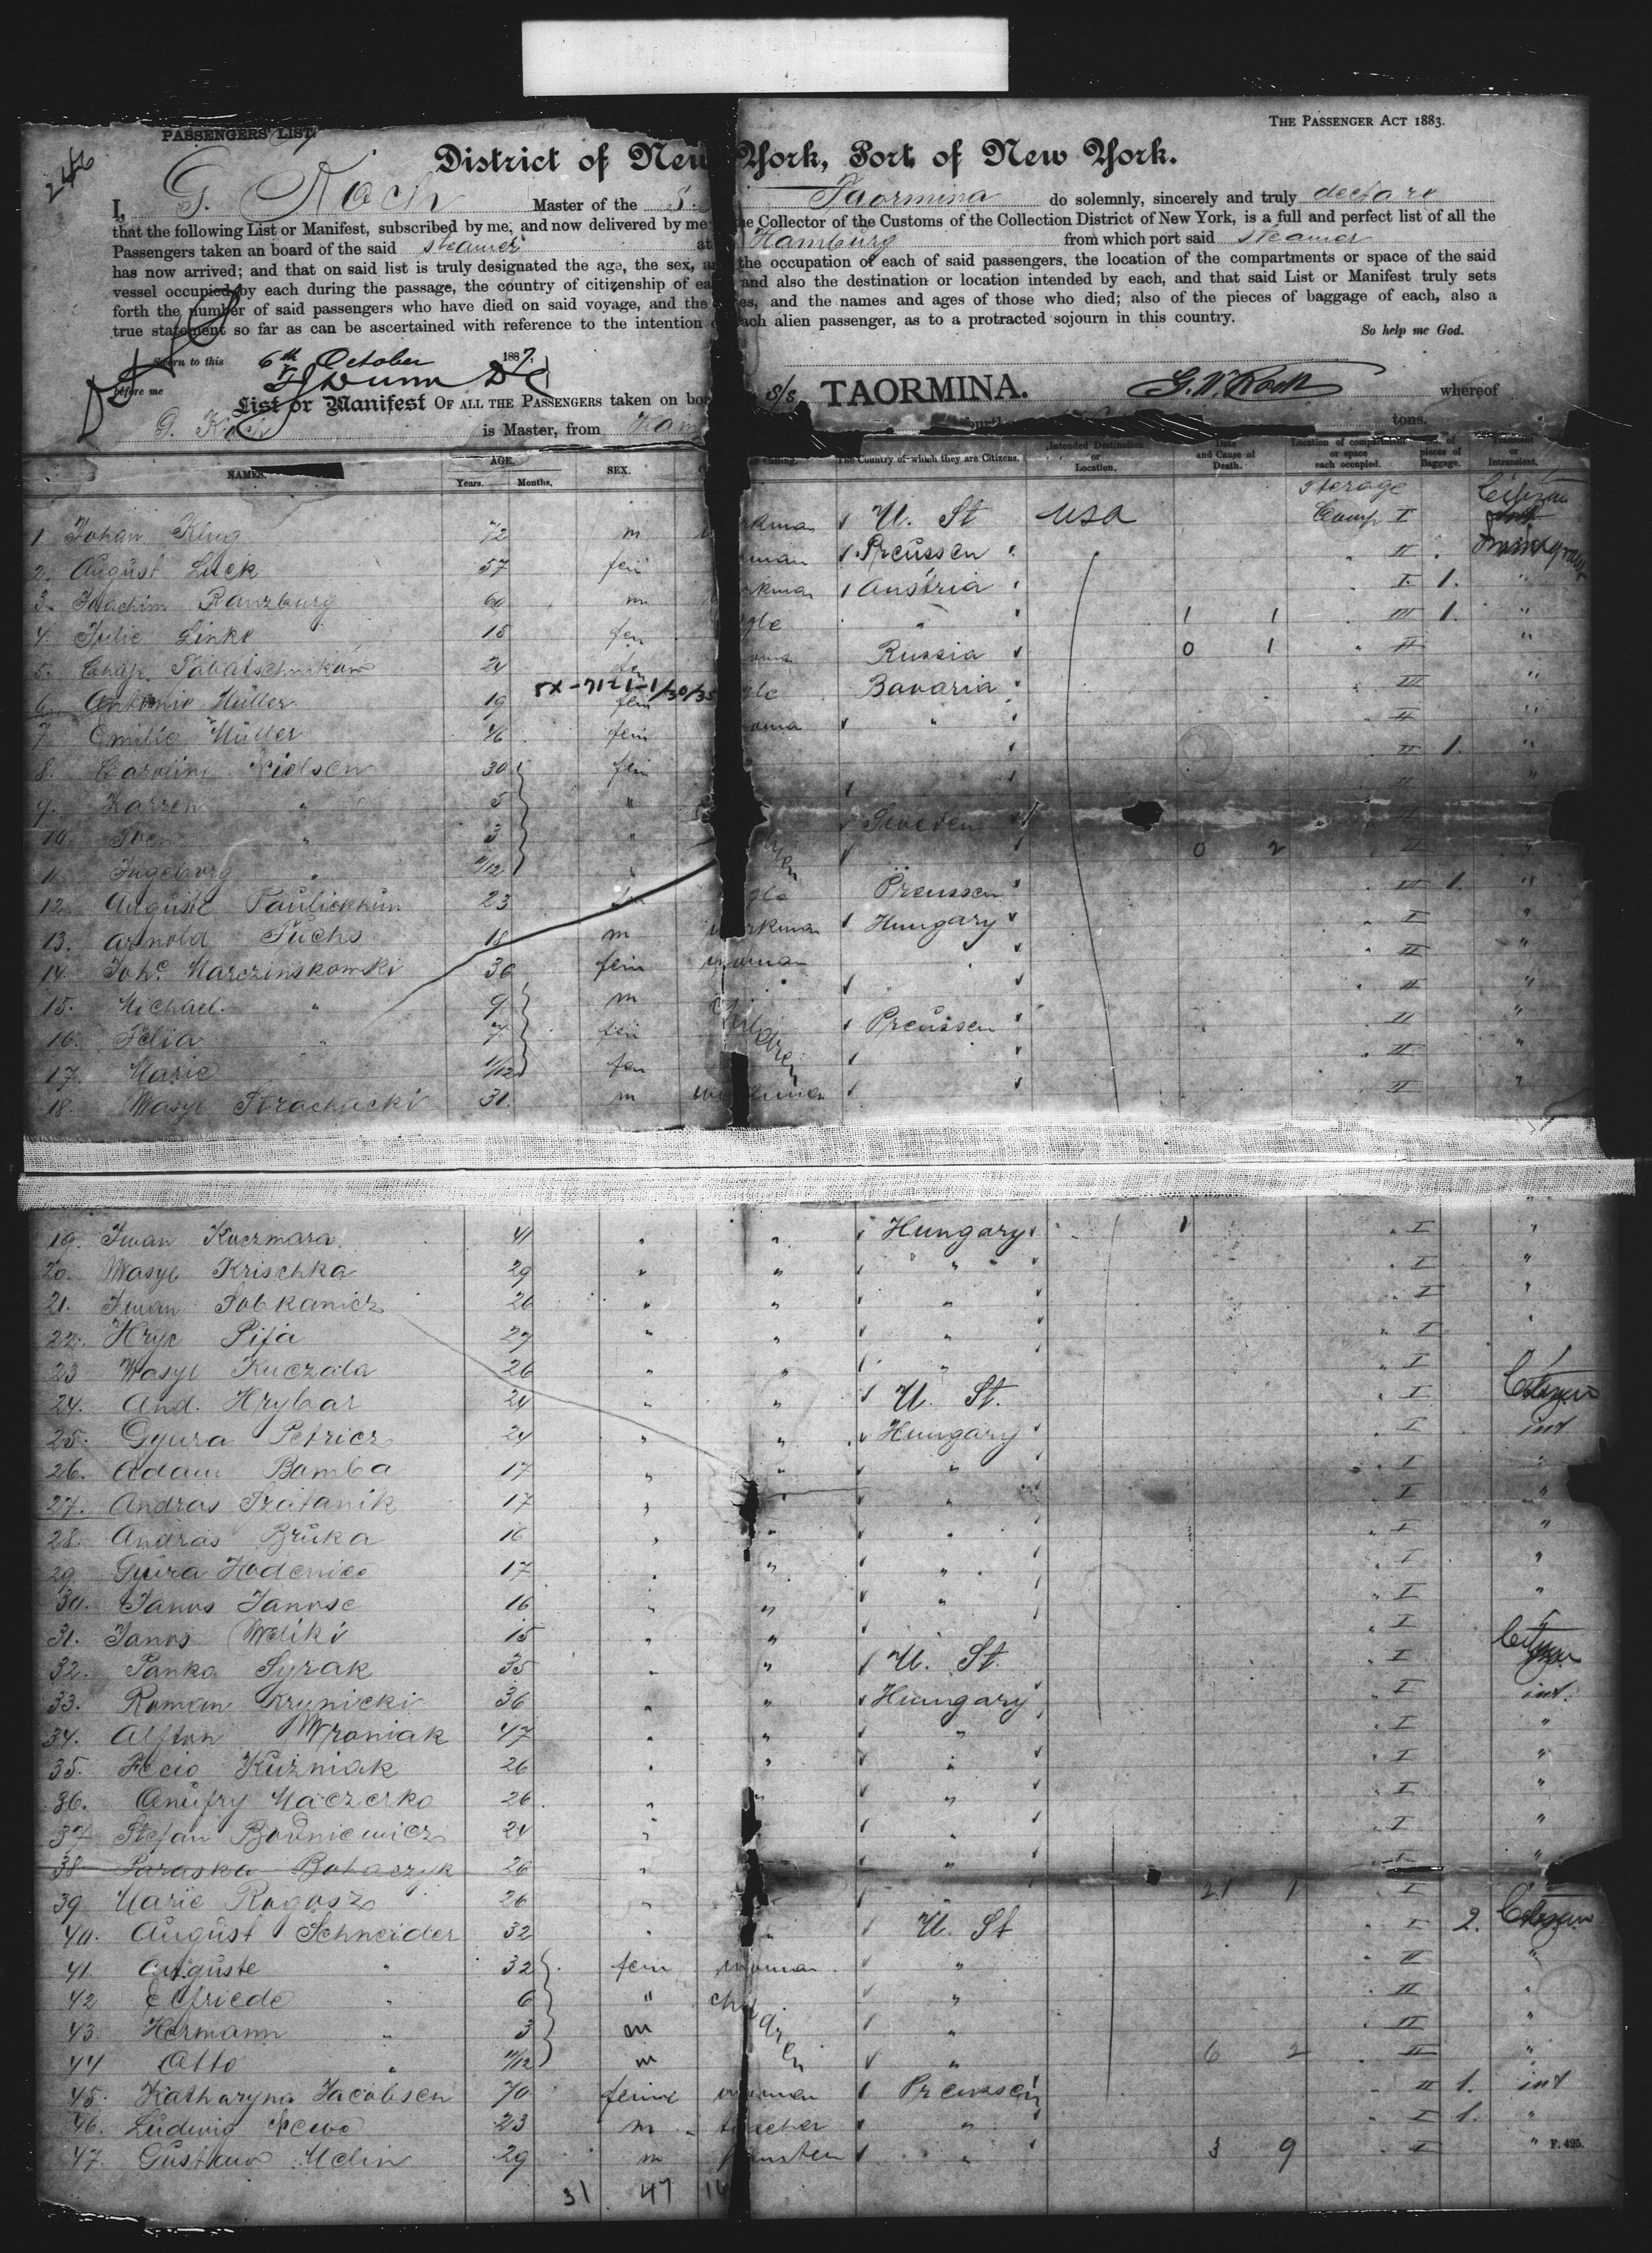 PASSENGERS' LIST.
THE PASSENGER ACT 1883.
246
District of New York, Port of New York.
I, G. Koch Master of the S. Taormina do solemnly, sincerely and truly declare
that the following List or Manifest, subscribed by me, and now delivered by me the Collector of the Customs of the Collection District of New York, is a full and perfect list of all the
Passengers taken an board of the said steamer at Hamburg from which port said steamer
has now arrived; and that on said list is truly designated the age, the sex, a the occupation of each of said passengers, the location of the compartments or space of the said
vessel occupied by each during the passage, the country of citizenship of ea and also the destination or location intended by each, and that said List or Manifest truly sets
forth the number of said passengers who have died on said voyage, and the es, and the names and ages of those who died; also of the pieces of baggage of each, also a
true statement so far as can be ascertained with reference to the intention o each alien passenger, as to a protracted sojourn in this country.
So help me God.
Sworn to this 6th October 1887,
before me
List or Manifest OF ALL THE PASSENGERS taken on bo S/S TAORMINA. G. Koch whereof
G. Koch is Master, from Ham tons.
NAMES. AGE. Years. Months. SEX. Calling. The Country of which they are Citizens. Intended Destination or Location. Date and Cause of Death. Location of compartment or space each occupied. No. of pieces of Baggage. Transient or Intransient.
Sterage Citizen
1 Johan Klug 72 m rkman U. St USA Comp I
2. August Luck 57 fem man Preussen " II
3. Joachim Ranzburg 60 m rkman Austria " I 1. "
4. Julie Linke 15 fem gle " 1 1 " III 1. "
5. 24 oma Russia 0 1 " II "
5x-7121-1/30/35
6. Antonie Müller 19 fem gle Bavaria " III "
7. Emilie Müller 46 fem oma " " II "
8. Caroline Nielsen 30 fem " II 1. "
9. Karren " 5 " " II "
10. " 3 " Sweden " II "
11. Ingeborg " 11/12 " 0 2 " II "
12. Auguste 23 gle Preussen " III 1. "
13. Arnold Fuchs 18 m rkman Hungary " I "
14. Johe. Marczinskowski 36 fem woman " II "
15. Michael " 9 m children " II "
16. Felia " 7 fem Preussen " II "
17. Marie 11/12 fem " II "
18. Wasyl 31. m " II "
19. Iwan Kuczmara 41 " " Hungary 1 " I "
20. Wasyl Krischka 29 " " " " I "
21. Iwan Tobkanicz 26 " " " " I "
22. Hryc Pija 27 " " " " I "
23 Wasyl Kuczala 26 " " " " I
24. And. Hrybar 24 " " U. St. " I Citizen
25. Gyura Petricz 24 " " Hungary " I int
26. Adam Bamba 17 " " " " I "
27. Andras 17 " " " " I "
28. Andras Bruka 16 " " " " I "
29. Gyura Hodenico 17 " " " " I "
30. Janos Janosc 16 " " " " I "
31. Janos Weliki 15 " " " I
32. Panko Syrak 35 " " U. St. " I Citizen
33. Roman Krynicki 36 " " Hungary " I int.
34. Wroniak 47 " " " " I "
35. Fecio Kuzniak 26 " " " " I "
36. Anufry Maczerko 26 " " " " I "
37. Stefan 24 " " " I "
38 Paraska Bohaczyk 26 " " " I "
39 Marie Rogosz 26 " " 21 1 " I
40. August Schneider 32 " " U. St " I 2. Citizen
41. Auguste " 32 fem woman " " II "
42 Elfriede " 6 " children " " II "
43. Hermann " 3 m " " II "
44 Otto " 11/12 m " 6 2 " II "
45. Katharyna Jacobsen 70 femme woman Preussen " II 1. int
46. Ludwig 23 m teacher " " I 1. "
47. Gustav Melin 29 m " 3 9 " I "
F. 425.
31 47 16